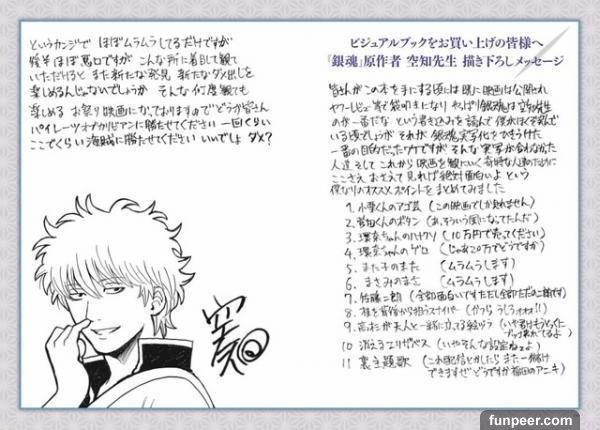 ビジュアルブックをお買い上げの皆様へ
『銀魂』原作者 空知先生 描き下ろしメッセージ
皆さんがこの本を手にする頃には既に映画は公開され
ヤフーレビュー等で
やっぱり銀魂は空知先生
のが一番だな という書き込みを読んで 僕がほくそ笑んで
いる頃でしょうが それが銀魂実写化をひきうけた
一番の目的だったワケですが そんな実写が合わなかった
人達 そして これから映画を観にいく奇特な人達のために
ここさえ おさえて見れば絶対面白いよ という
僕なりのオススメポイントをまとめてみました
1. 小栗くんのアゴ芸 (この映画でしか見れません)
2. 菅田くんのボタン (あ、そういう風になってたんだ)
3. 環奈ちゃんのハナクソ (10万円で売ってください)
4. 環奈ちゃんのゲロ (じゃあ20万でどうですか)
5. また子のまた (ムラムラします)
6. まさみのまさ (ムラムラします)
7. 佐藤二朗 (全部面白いですただし全部ただの二朗です)
8. 桂を背後から狙うスナイパー (かつら うしろォォ!!)
9. 高杉が夫人と一緒に立てる絵ヅラ
10. 消えるエリザベス (いやそんな設定ねェよ)
11. 裏主題歌 (これ配信とかしたら また一儲け
できますぜ どうですか福田のアニキ)
というカンジで ほぼムラムラしてるだけですが
後半ほぼ悪口ですが こんな所に着目して観て
いただけると また新たな発見 新たなダメ出しを
楽しめるんじゃないでしょうか そんな何度観ても
楽しめる お祭り映画になっておりますので どうか皆さん
パイレーツオブカリビアンに勝たせてください 一回くらい
ここでくらい 海賊に勝たせてください いいでしょ ダメ?
空知
funpeer.com